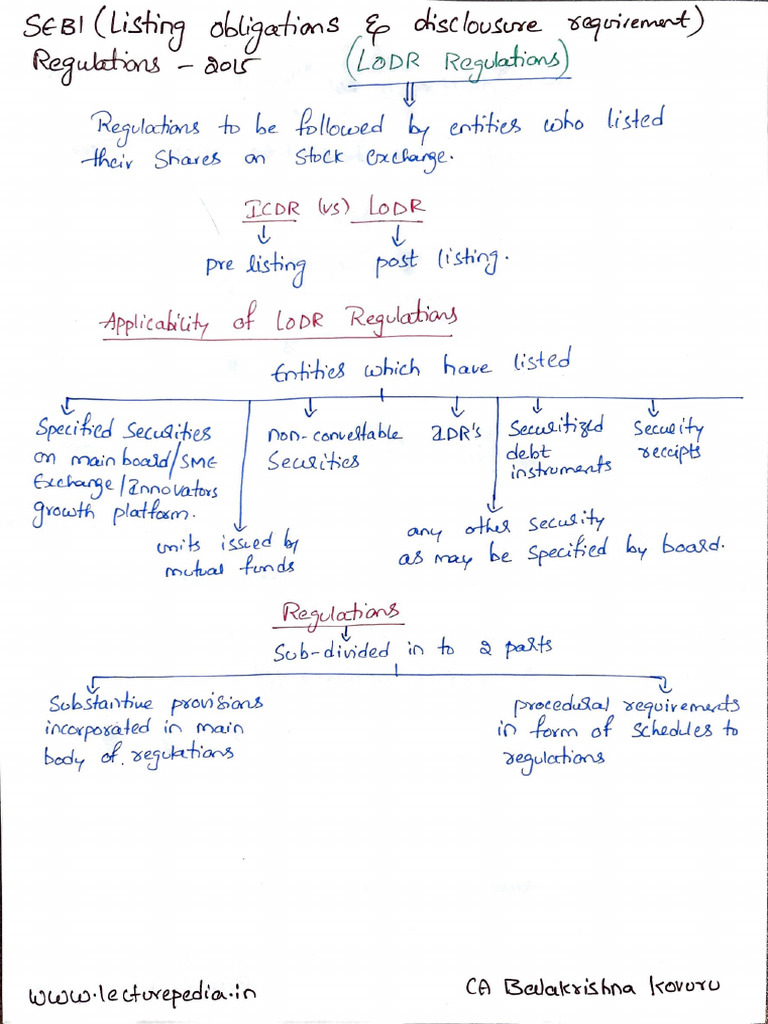 SEBI (Listing obligations & disclousure requirement)
Regulations - 2015 (LODR Regulations)
Regulations to be followed by entities who listed
their shares on stock exchange.
ICDR (vs) LODR
pre listing post listing.
Applicability of LODR Regulations
Entities which have listed
Specified Securities
on main board/SME
Exchange/Innovators
growth platform.
units issued by
mutual funds
non-convertable
Securities
IDR's
Securitized
debt
instruments
Security
receipts
any other security
as may be specified by board.
Regulations
Sub-divided in to 2 parts
Substantive provisions
incorporated in main
body of regulations
procedural requirements
in form of schedules to
regulations
www.lecturepedia.in CA Balakrishna Kovuru